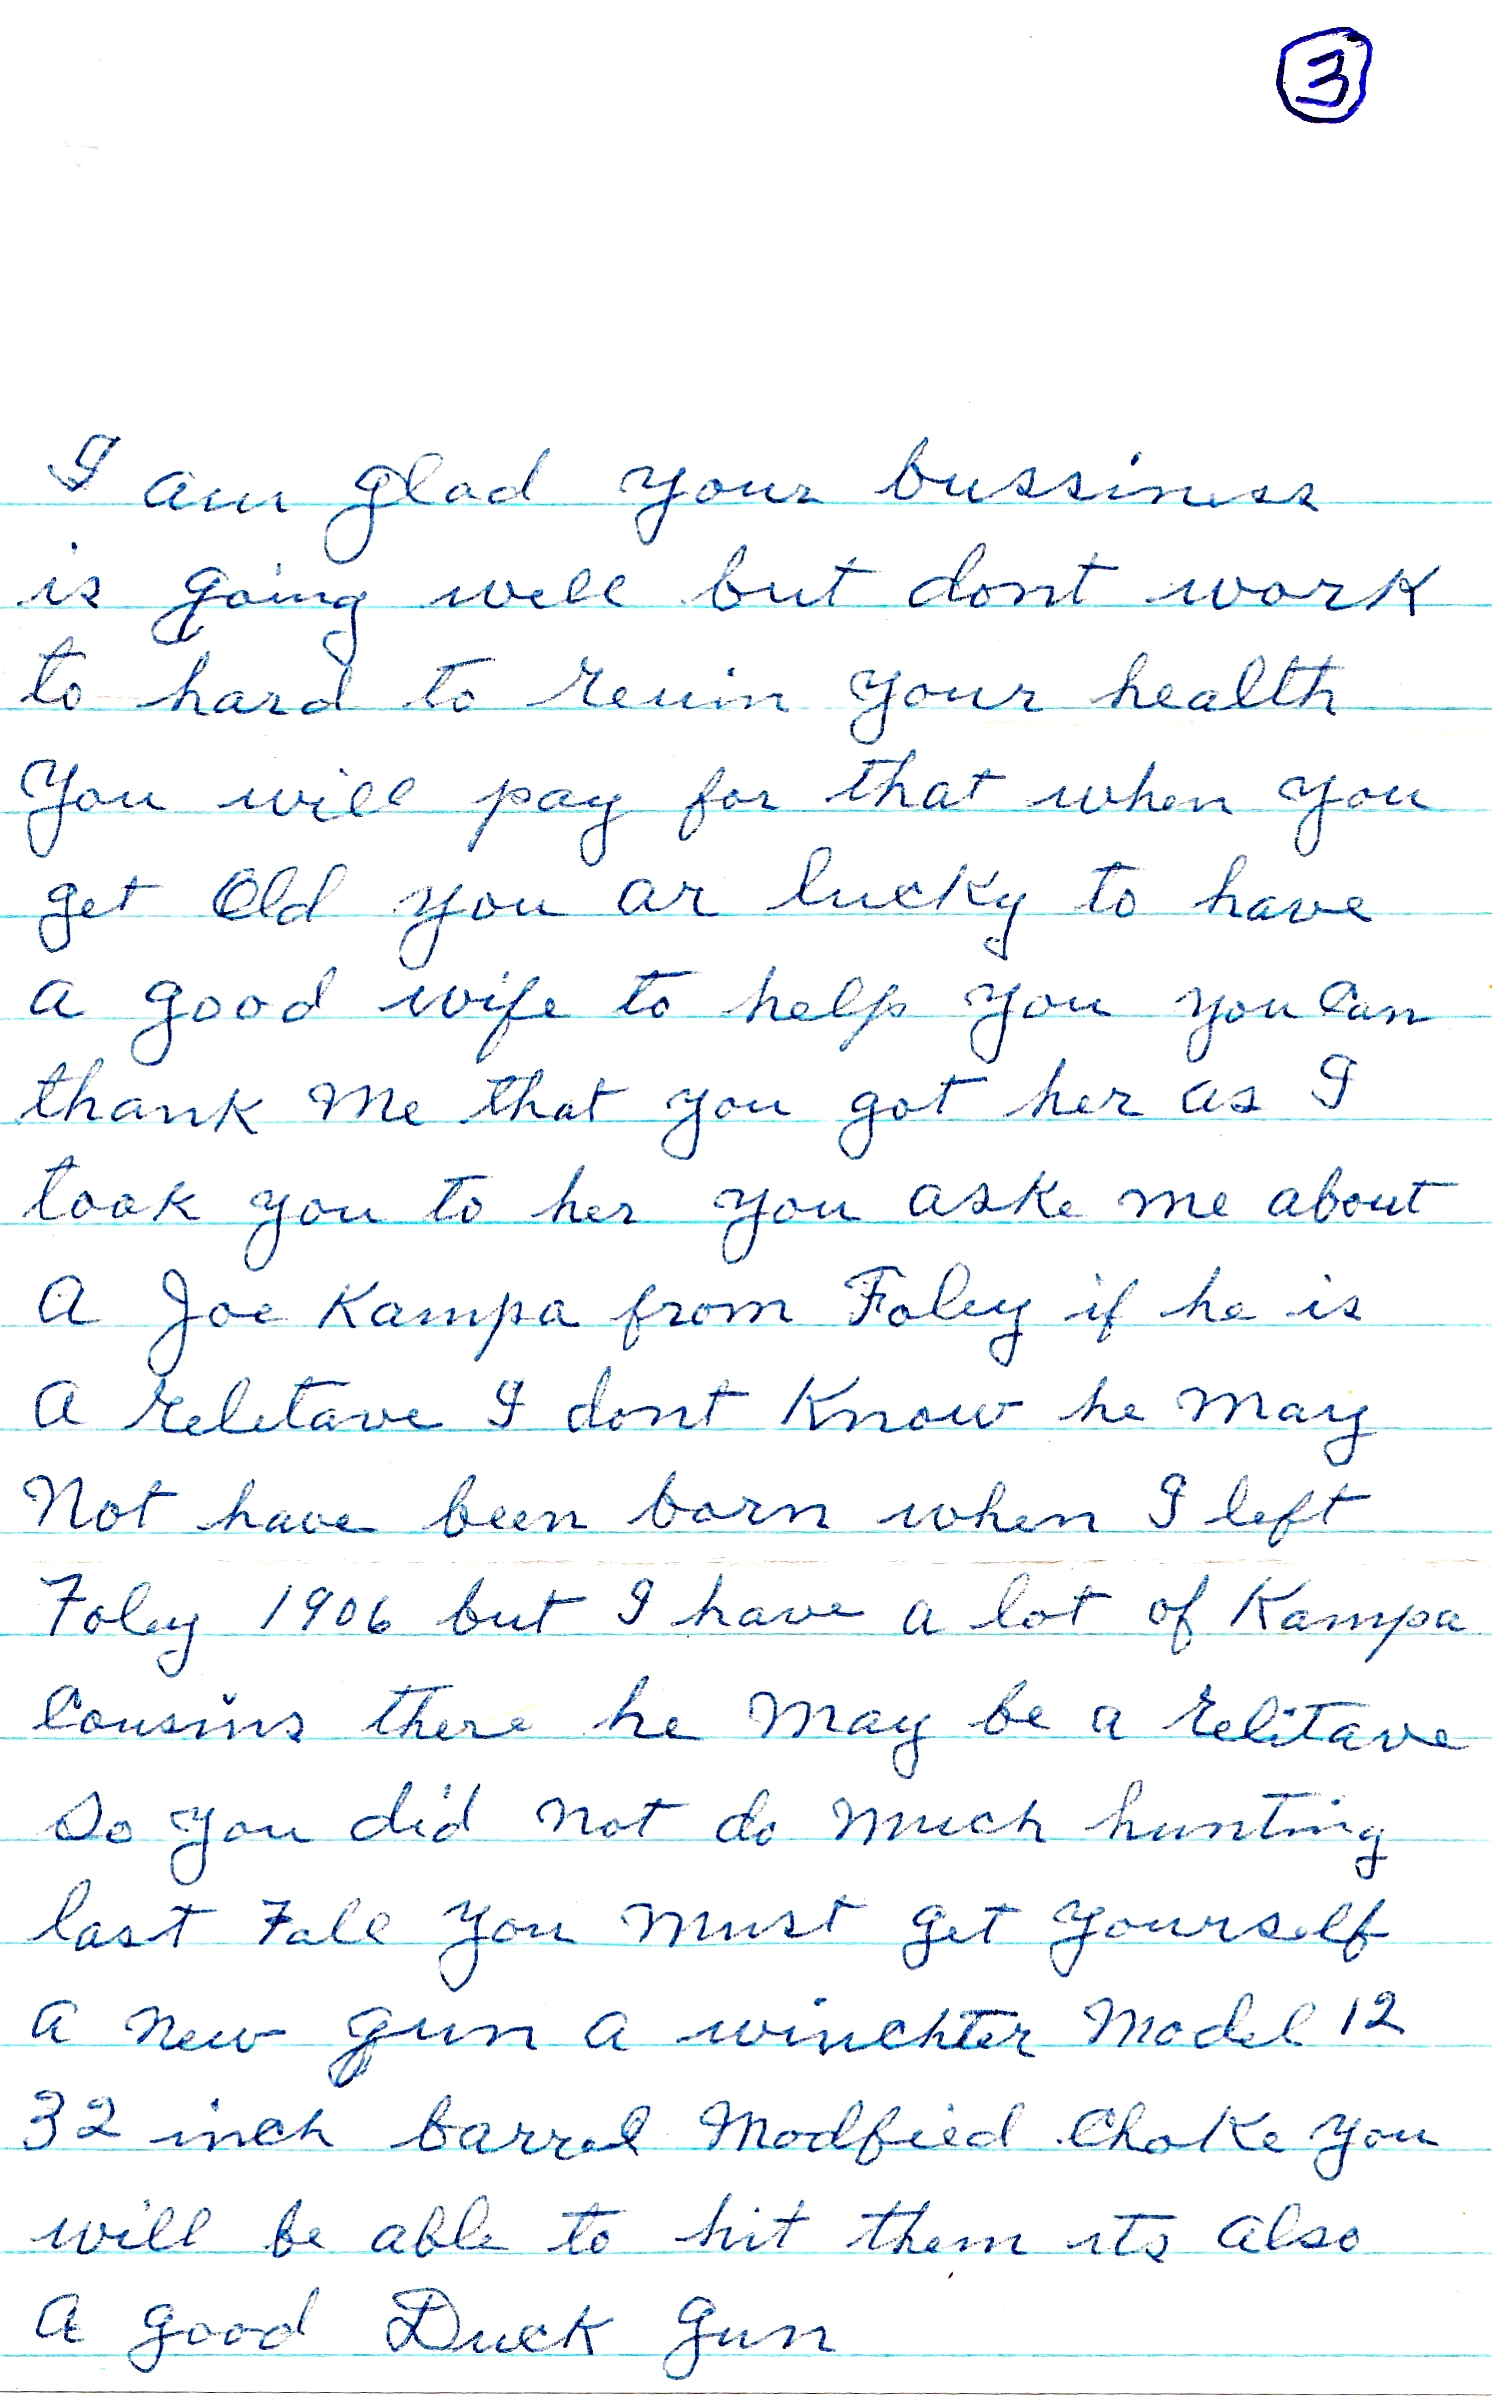 3
I am glad your bussiness
is going well but dont work
to hard to reuin your health
You will pay for that when you
get Old you ar lucky to have
a good wife to help you you Can
thank Me that you got her as I
took you to her you aske me about
A Joe Kampa from Foley if he is
A reletave I dont Know he May
Not have been born when I left
Foley 1906 but I have a lot of Kampa
Cousins there he May be a relitave
So you did Not do Much hunting
last Fall You Must get yourself
a New gun a winchter Model 12
32 inch barrel Modfied Choke you
will be able to hit them its also
A good Duck Gun